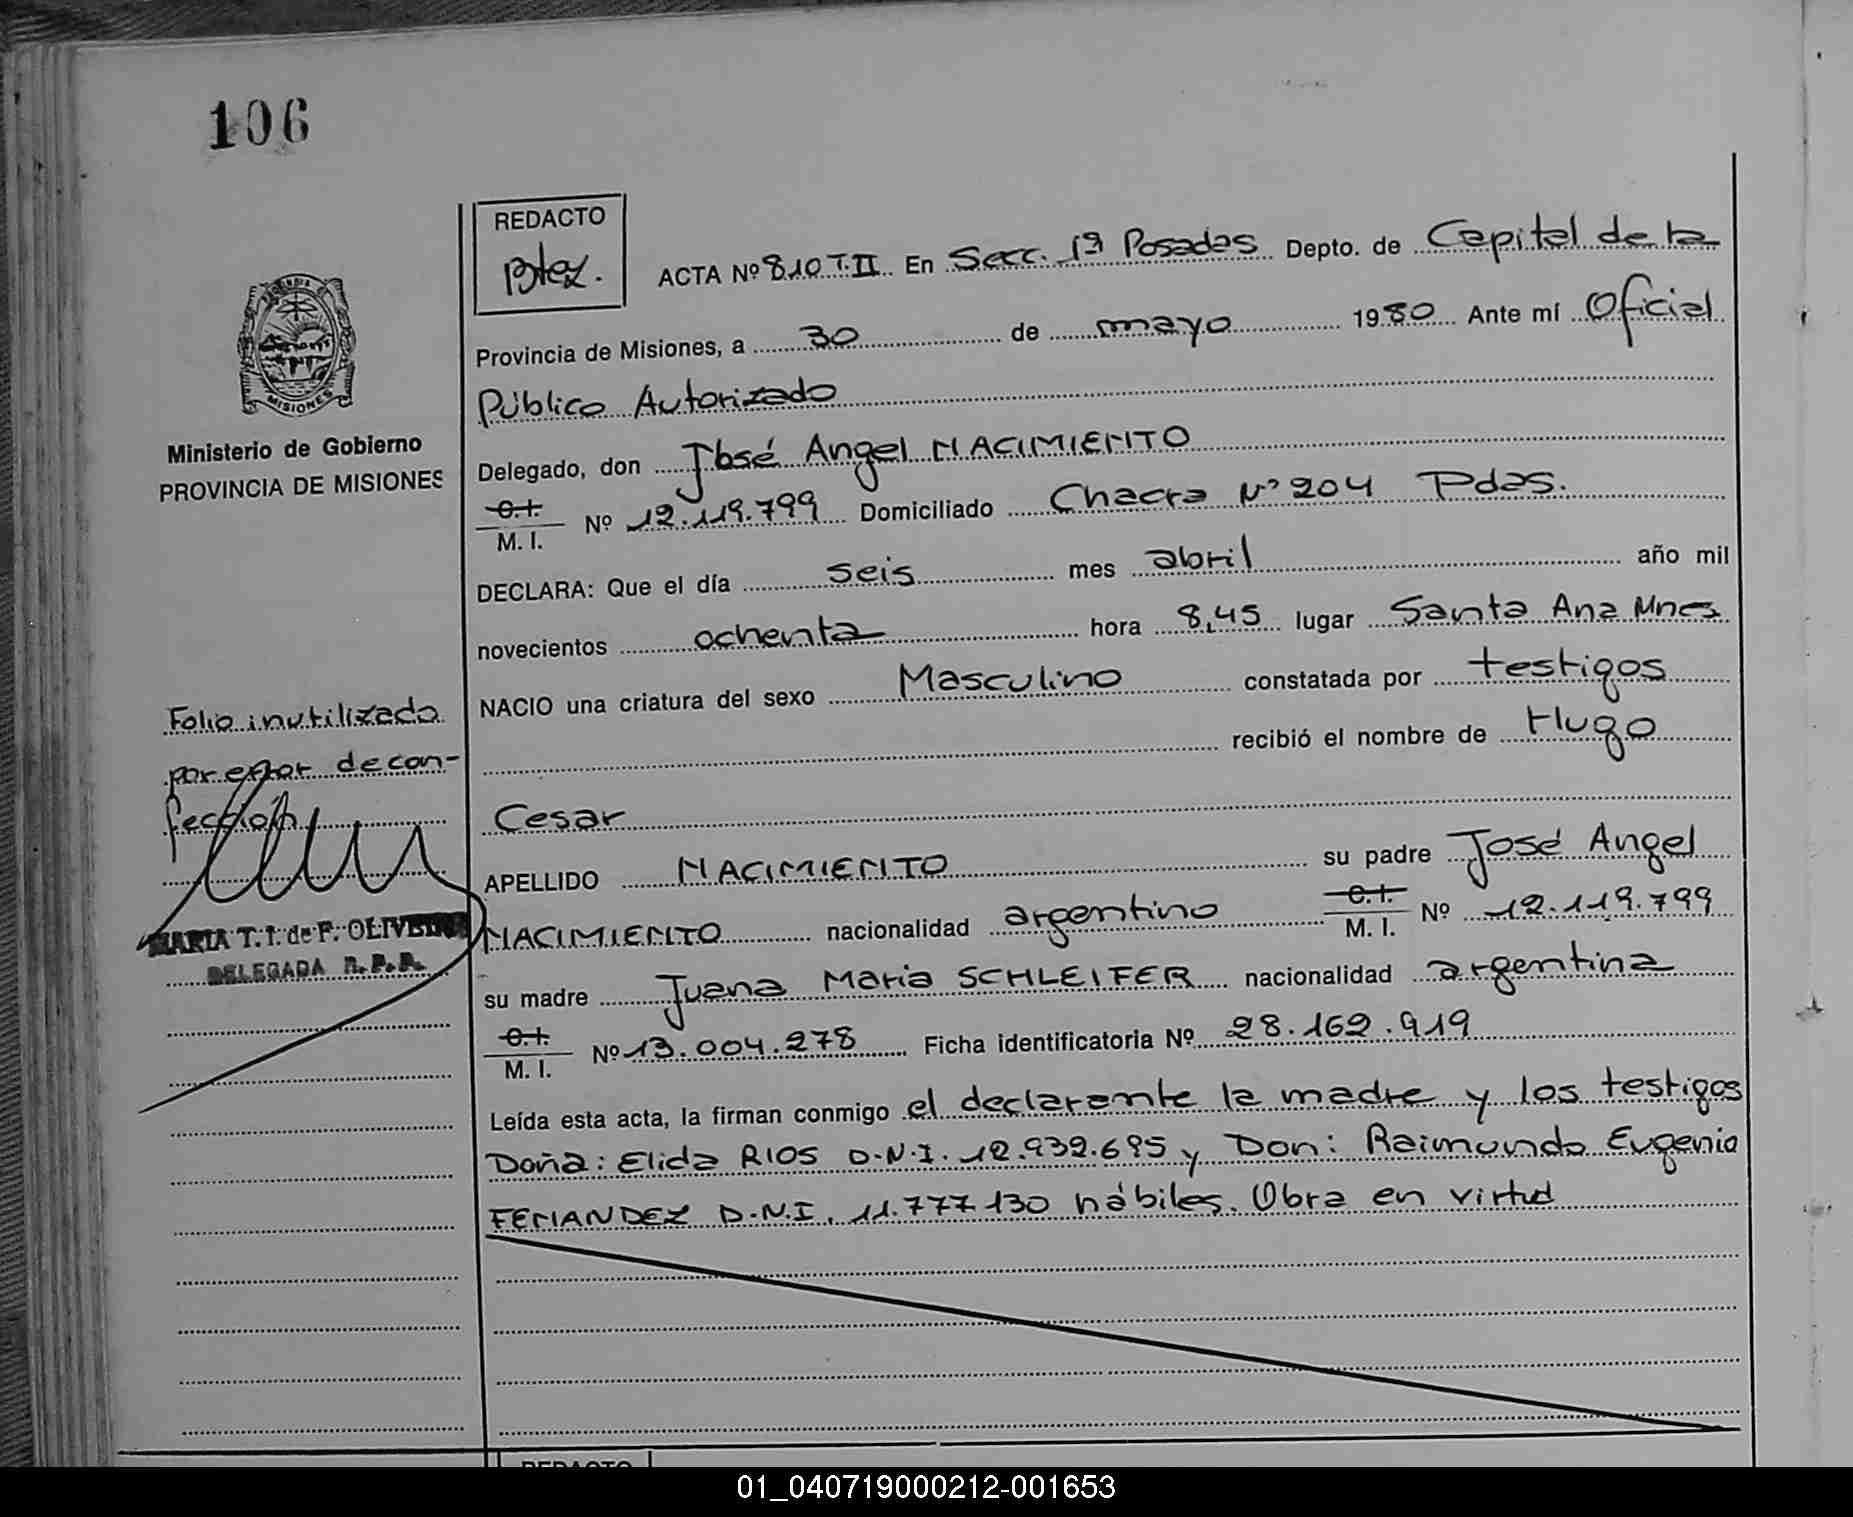 106
REDACTO
Btez.
ACTA Nº 810 T.II En Secc. 1ª Posadas Depto. de Capital de la
Provincia de Misiones, a 30 de mayo 1980 Ante mí Oficial
Público Autorizado
MISIONES
Ministerio de Gobierno
PROVINCIA DE MISIONES
Delegado, don José Angel NACIMIENTO
C.I.
M. I. Nº 12.119.799 Domiciliado Chacra Nº 204 Pdas.
DECLARA: Que el día seis mes abril año mil
novecientos ochenta hora 8,45 lugar Santa Ana Mnes
NACIO una criatura del sexo Masculino constatada por testigos
recibió el nombre de Hugo
Cesar
APELLIDO NACIMIENTO su padre José Angel
NACIMIENTO nacionalidad argentino C.I. M. I. Nº 12.119.799
su madre Juana Maria SCHLEIFER nacionalidad argentina
C.I.
M. I. Nº 13.004.278 Ficha identificatoria Nº 28.162.919
Leída esta acta, la firman conmigo el declarante la madre y los testigos
Doña: Elida RIOS D.N.I. 12.932.695 y Don: Raimundo Eugenio
FERNANDEZ D.N.I. 11.777.130 hábiles. Obra en virtud
Folio inutilizado
por error de con-
fección
MARIA T. I. de F. OLIVEIRA
DELEGADA R.P.P.
REDACTO
01_040719000212-001653